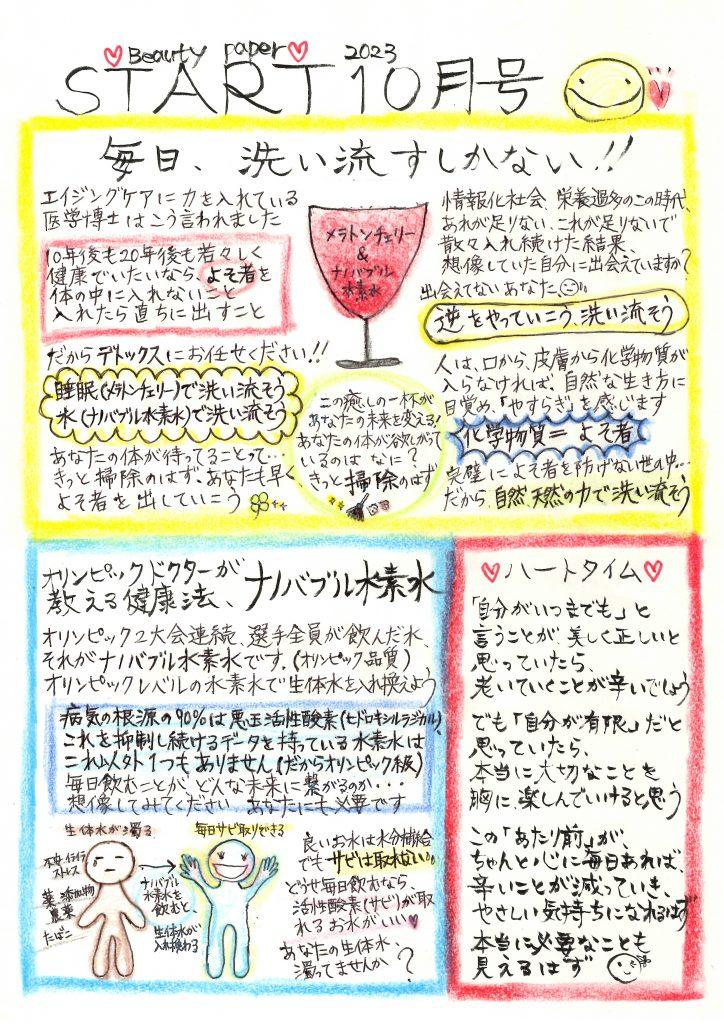 Beauty paper 2023
START 10月号
毎日、洗い流すしかない!!
エイジングケアに力を入れている
医学博士はこう言われました
10年後も20年後も若々しく
健康でいたいなら、よそ者を
体の中に入れないこと
入れたら直ちに出すこと
だからデトックスにお任せください!!
睡眠(メラトンチェリー)で洗い流そう
水(ナノバブル水素水)で洗い流そう
あなたの体が待ってることって…
きっと掃除のはず、あなたも早く、
よそ者を出していこう
メラトンチェリー
&
ナノバブル
水素水
この癒しの一杯が
あなたの未来を変える!
あなたの体が欲しがって
いるのは なに?
きっと掃除のはず
情報化社会、栄養過多のこの時代、
あれが足りない、これが足りないで
散々入れ続けた結果、
想像していた自分に出会えていますか?
出会えてないあなた、
逆をやっていこう、洗い流そう
人は、口から、皮膚から化学物質が
入らなければ、自然な生き方に
目覚め、「やすらぎ」を感じます
化学物質=よそ者
完璧によそ者を防げない世の中…
だから、自然、天然の力で洗い流そう
オリンピックドクターが
教える健康法、ナノバブル水素水
オリンピック2大会連続、選手全員が飲んだ水、
それがナノバブル水素水です。(オリンピック品質)
オリンピックレベルの水素水で生体水を入れ換えよう
病気の根源の90%は悪玉活性酸素(ヒドロキシルラジカル)、
これを抑制し続けるデータを持っている水素水は
これ以外1つもありません(だからオリンピック級)
毎日飲むことが、どんな未来に繋がるのか…
想像してみてください あなたにも必要です
生体水が濁る
不安・イライラ
ストレス
薬・添加物
農薬
たばこ
ナノバブル
水素水を
飲むと、
生体水が
入れ換わる
毎日サビ取りできる
良いお水は水分補給
でも サビは取れない
どうせ毎日飲むなら、
活性酸素(サビ)が取
れるお水がいい
あなたの生体水、
濁ってませんか?
ハートタイム
「自分がいつまでも」と
言うことが、美しく正しいと
思っていたら、
老いていくことが辛いでしょう
でも「自分が有限」だと
思っていたら、
本当に大切なことを
胸に、楽しんでいけると思う
この「あたり前」が、
ちゃんと心に毎日あれば、
辛いことが減っていき、
やさしい気持ちになれるはず
本当に必要なことも
見えるはず